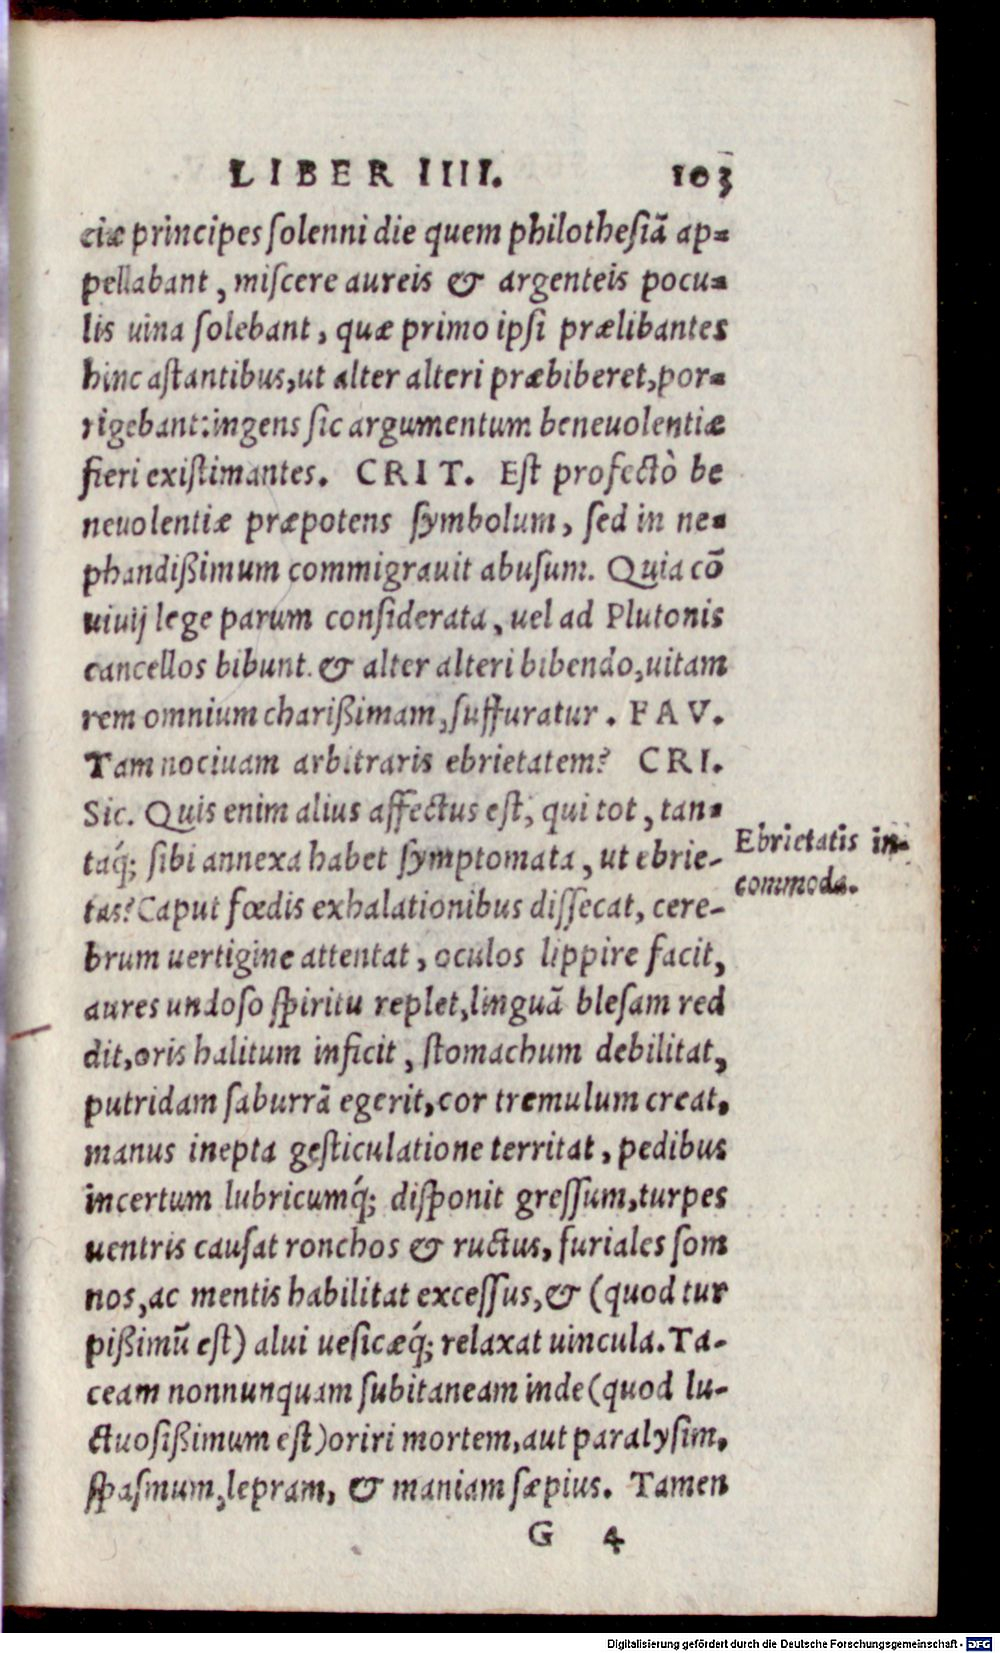 LIBER IIII. 103
ciæ principes solenni die quem philothesiā ap=
pellabant, miscere aureis & argenteis pocu=
lis uina solebant, quæ primo ipsi prælibantes
hinc astantibus, ut alter alteri præbiberet, por=
rigebant: ingens sic argumentum beneuolentiæ
fieri existimantes. CRIT. Est profectò be
neuolentiæ præpotens symbolum, sed in ne=
phandißimum commigrauit abusum. Quia cō
uiuij lege parum considerata, uel ad Plutonis
cancellos bibunt. & alter alteri bibendo, uitam
rem omnium charißimam, suffuratur. FAV.
Tam nociuam arbitraris ebrietatem? CRI.
Sic. Quis enim alius affectus est, qui tot, tan=
taq́; sibi annexa habet symptomata, ut ebrie-
tas? Caput fœdis exhalationibus dissecat, cere-
brum uertigine attentat, oculos lippire facit,
aures undoso spiritu replet, linguā blesam red
dit, oris halitum inficit, stomachum debilitat,
putridam saburrā egerit, cor tremulum creat,
manus inepta gesticulatione territat, pedibus
incertum lubricumq́; disponit gressum, turpes
uentris causat ronchos & ructus, furiales som
nos, ac mentis habilitat excessus, & (quod tur
pißimū est) alui uesicæq́; relaxat uincula. Ta-
ceam nonnunquam subitaneam inde (quod lu-
ctuosißimum est) oriri mortem, aut paralysim,
spasmum, lepram, & maniam sæpius. Tamen
G 4
Ebrietatis in-
commoda.
Digitalisierung gefördert durch die Deutsche Forschungsgemeinschaft - DFG